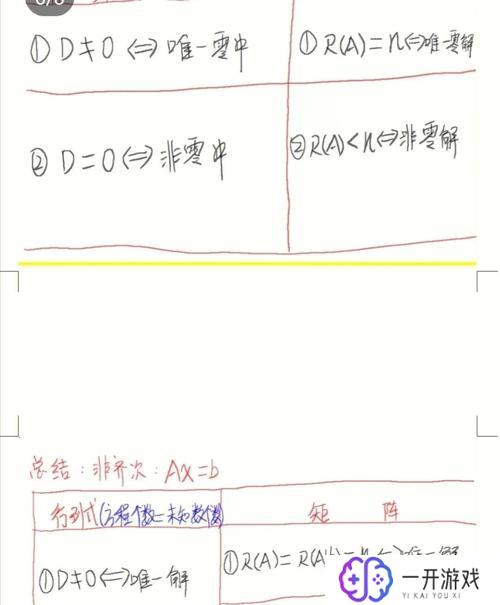 6/6
① D≠0 ⇔ 唯一零中
① R(A)=n⇔唯一零解
② D=0⇔非零中
② R(A)<n⇔非零解
总结:非齐次:Ax=b
行列式(方程个数=未知数个数)
矩 阵
① D≠0⇔唯一解
① R(A)=R(A
一开游戏
YI KAI YOU XI